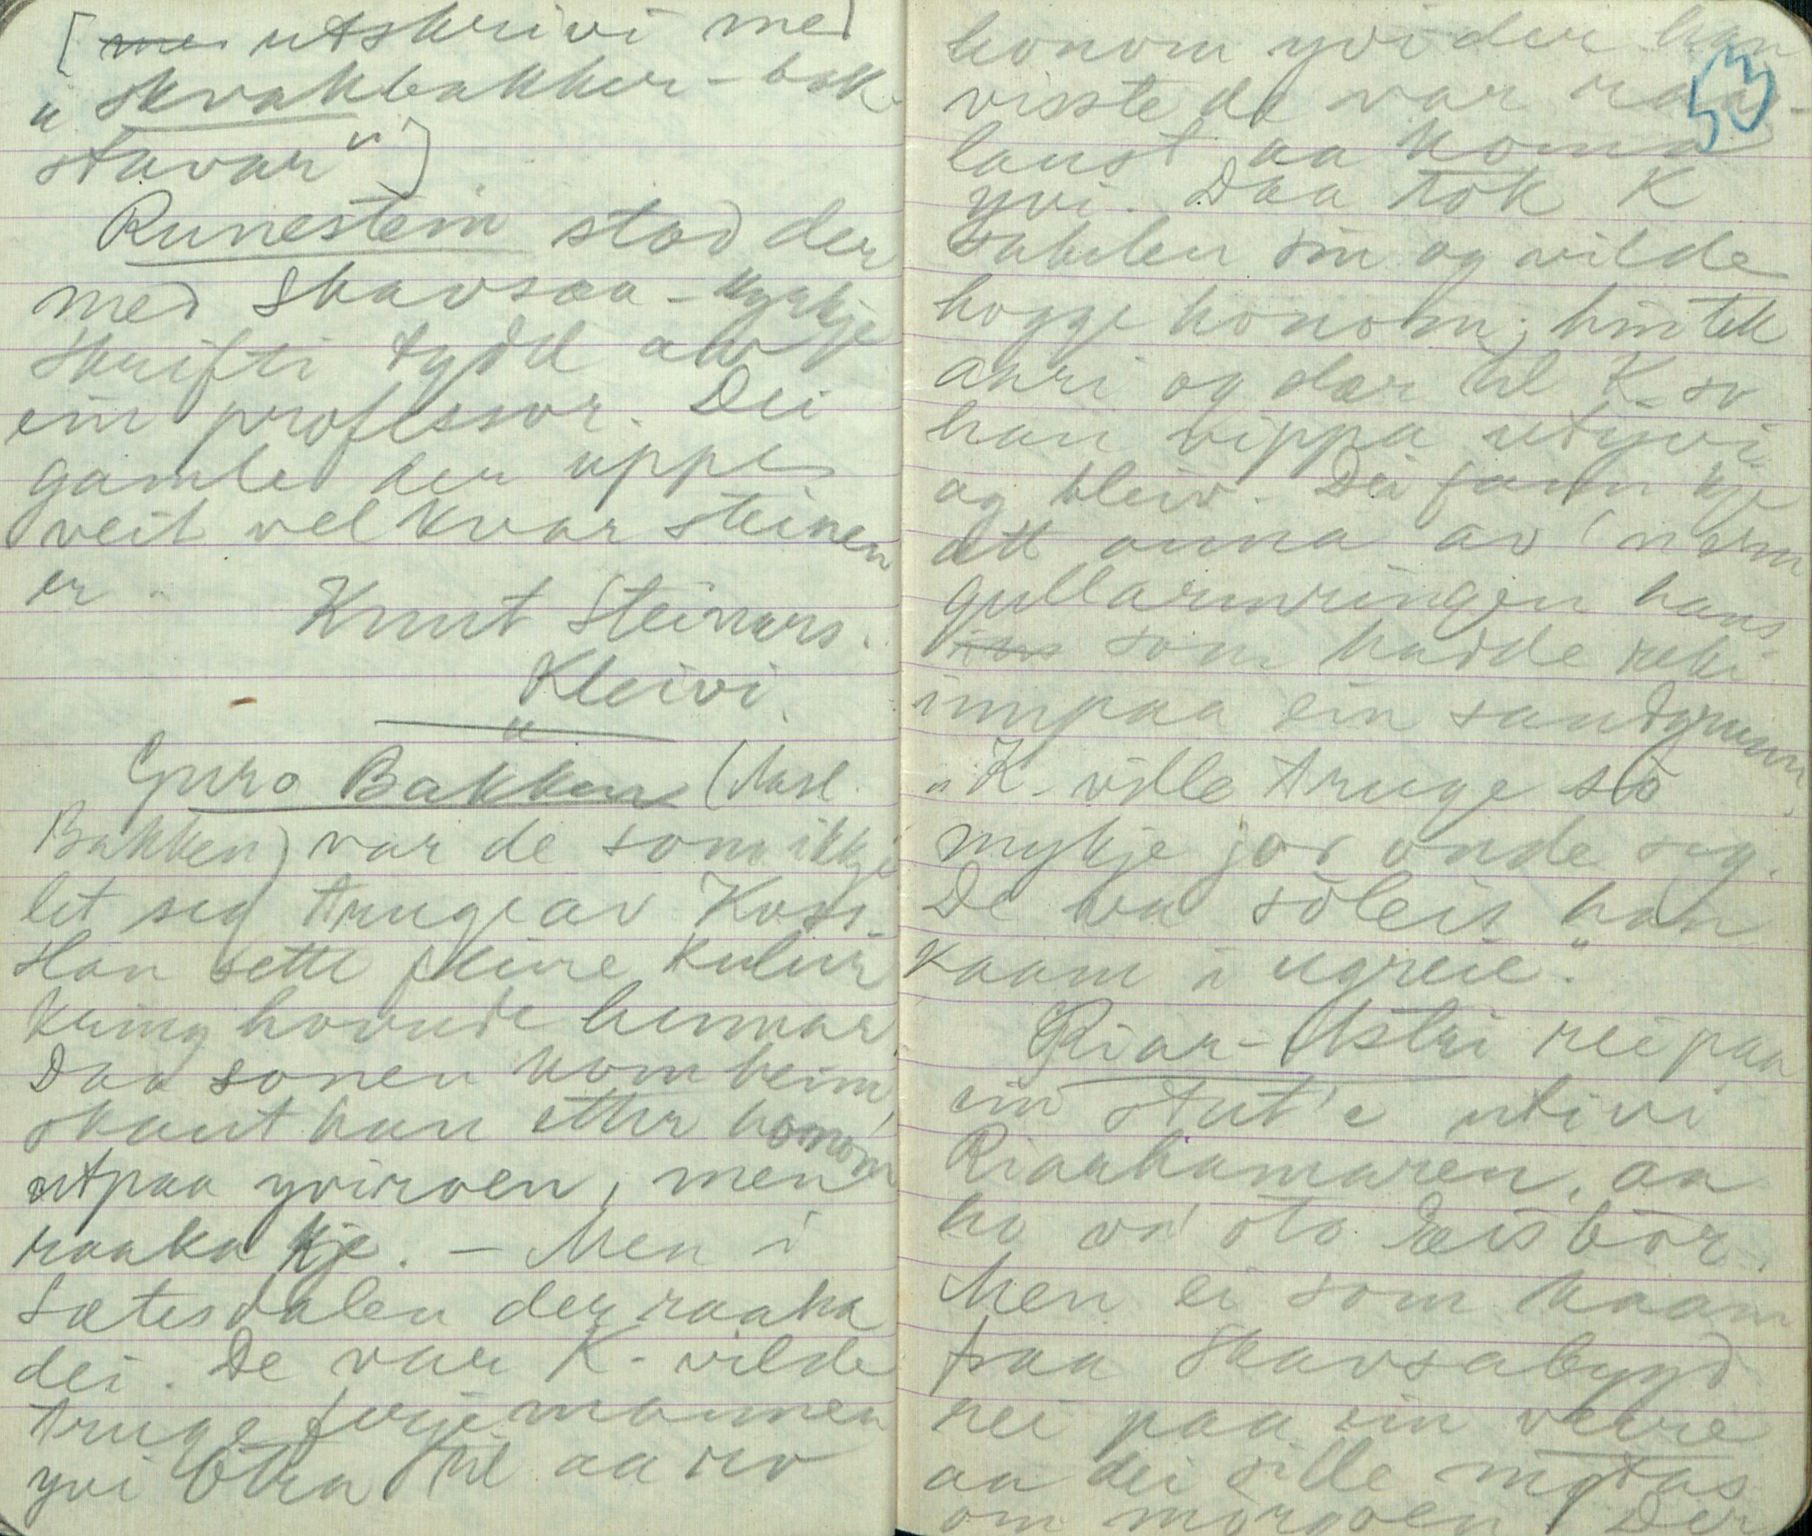 [ me utskrivi med
" Skrakbakker-bok-
stavar" ]
Runestein stod der
med Skavsaa-kyrkje
skrifti tydd av
ein professor. Dei
gamle der uppe
veit vel kvar steinen
er.
Knut Steinars.
Kleivi.
"
Guro Bakken (Aasl.
Bakken) var de som ikkje
let seg truge av Koss.
Han sette fleire kulur
kring hovude hennar
Daa sonen kom heim,
skaut han etter honom
utpaa yvi, men
raaka kje. – Men i
Sætesdalen der raaka
dei. De var K. vilde
truge ferjemannen
yvi Otra til aa ro
honom yvi der han
visste de var raad-
laust aa koma
yvi. Daa tok K
sabelen sin og vilde
hogge honom; hin tok
åri og slær til K. so
han vippa utyvi
og bleiv. Dei fann kje
att anna av
gullarmringen hans
som hadde reki
innpaa ein sandgrunn
"K. ville truge så
mykje jor unde seg.
De va såleis han
kaam i ugreie".
Riar-Astri rei paa
ein stut'e utivi
Riarhamaren, aa
ho va' oto
Men ei som kaam
fraa Skavsabygd
rei paa ein veire
aa dei sille møtas
om morgoen. Der
53